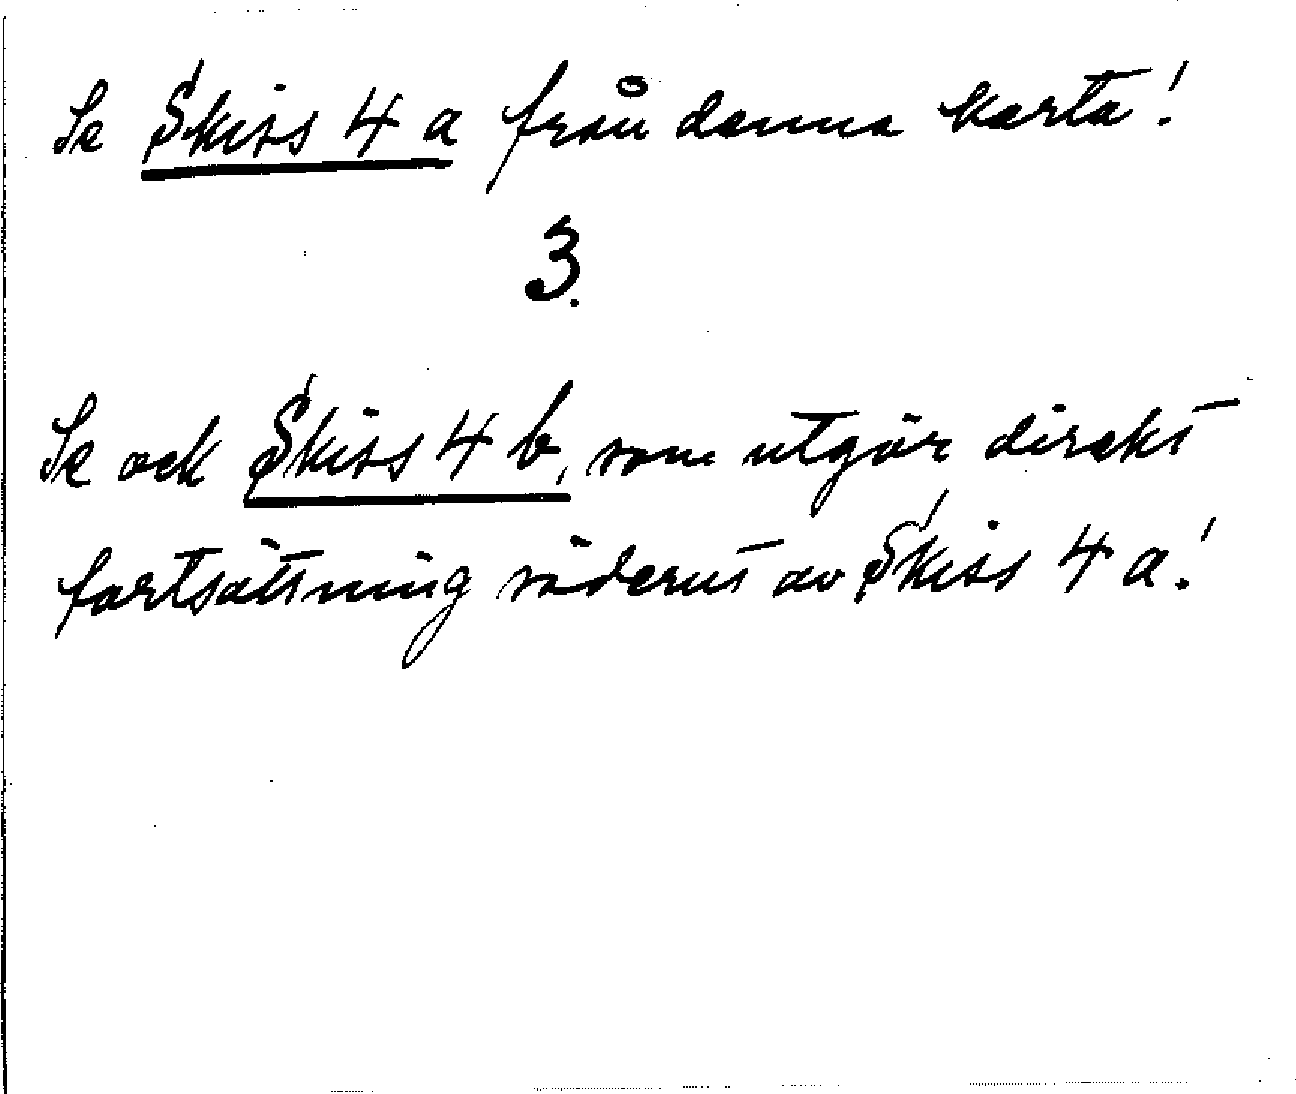 Se Skiss 4 a från denna karta!
3.
Se ock Skiss 4 b, som utgör direkt
fortsättning söderut av Skiss 4 a!